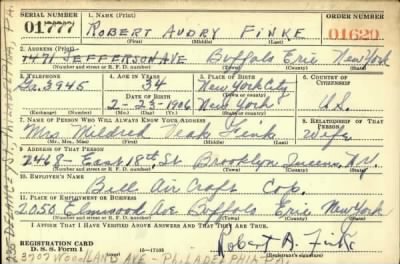 SERIAL NUMBER
1. NAME (Print)
ORDER NUMBER
01777
ROBERT AUDRY FINKE
01629
(First) (Middle) (Last)
2. ADDRESS (Print)
1471 JEFFERSON AVE Buffalo Erie New York
(Number and street or R. F. D. number) (Town) (County) (State)
3. TELEPHONE
4. AGE IN YEARS
5. PLACE OF BIRTH
6. COUNTRY OF CITIZENSHIP
Ga. 3945
34
New York City
DATE OF BIRTH
(Town or county)
2-23-1906
New York
U.S.
(Exchange) (No.)
(Mo.) (Day) (Yr.)
(State or country)
7. NAME OF PERSON WHO WILL ALWAYS KNOW YOUR ADDRESS
8. RELATIONSHIP OF THAT PERSON
Mrs Mildred Finke
Wife
(Mr., Mrs., Miss) (First) (Middle) (Last)
9. ADDRESS OF THAT PERSON
2468-East 18th St Brooklyn Queens N.Y.
(Number and street or R. F. D. number) (Town) (County) (State)
10. EMPLOYER'S NAME
Bell Air Craft Cop.
11. PLACE OF EMPLOYMENT OR BUSINESS
2050 Elmwood Ave Buffalo Erie New York
(Number and street or R. F. D. number) (Town) (County) (State)
I AFFIRM THAT I HAVE VERIFIED ABOVE ANSWERS AND THAT THEY ARE TRUE.
REGISTRATION CARD
D. S. S. Form 1
16-17105
Robert A. Finke
3707 WOODLAND AVE - PHILADELPHIA PA.